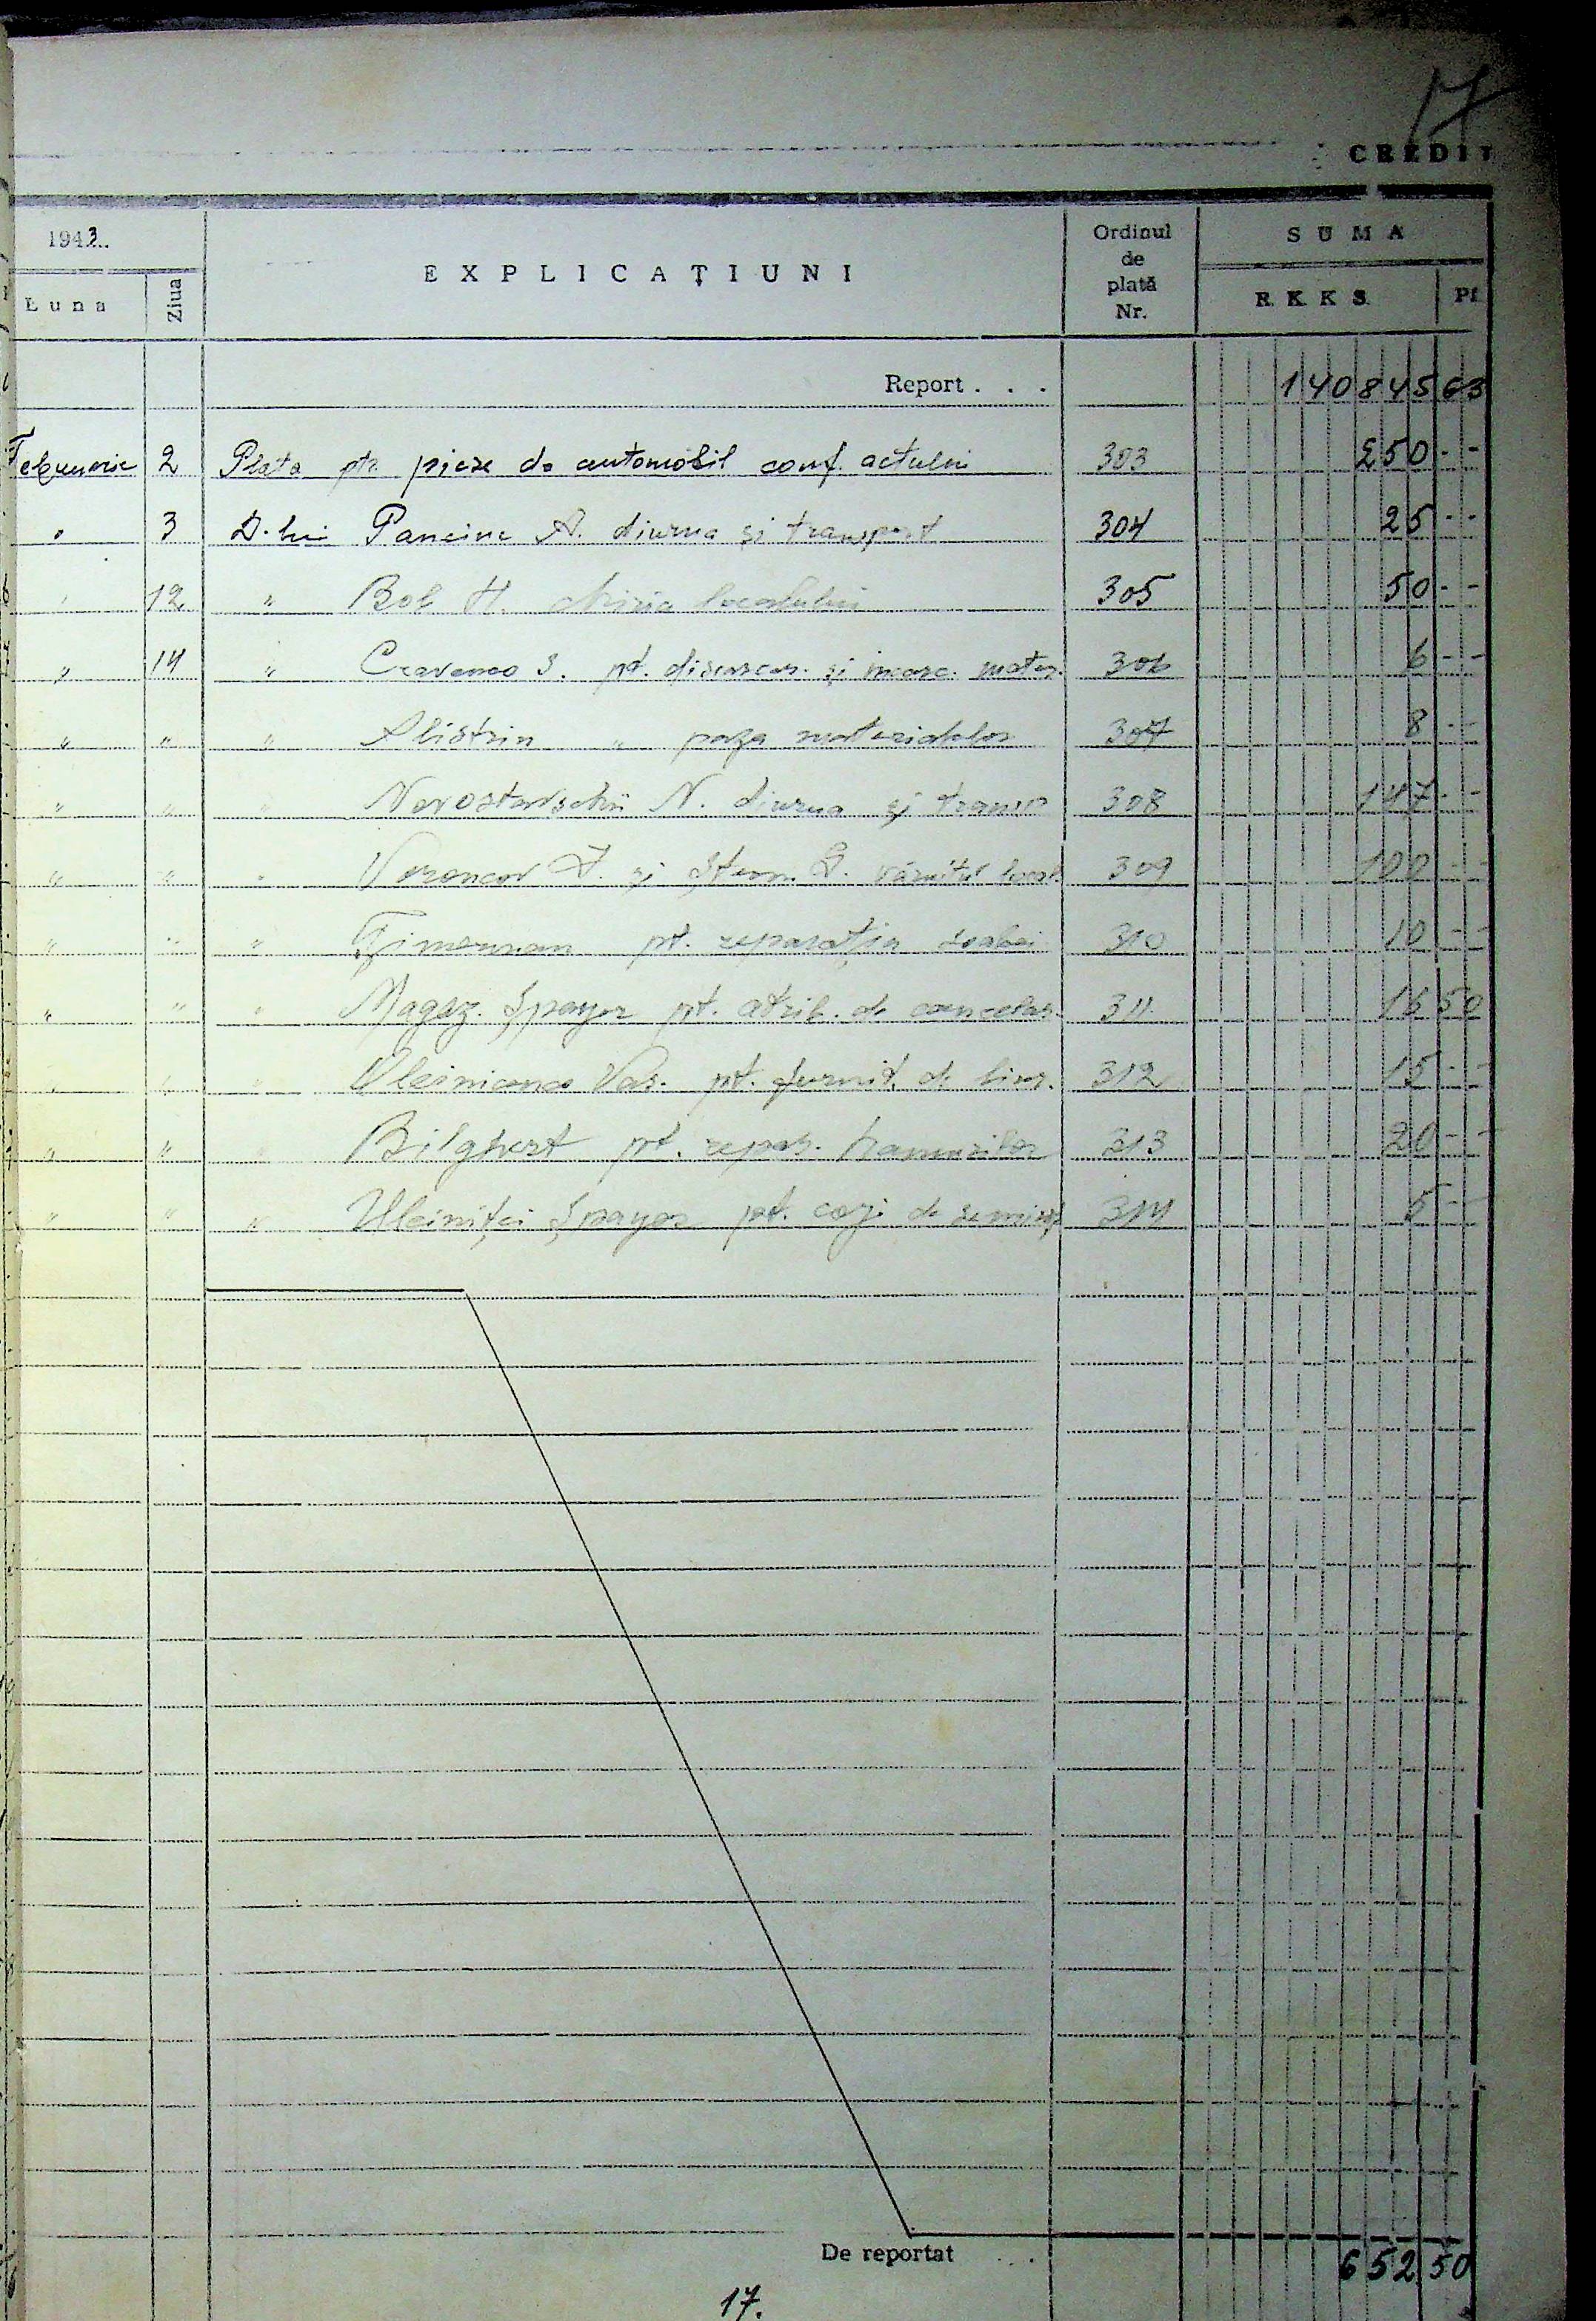 17
CREDIT
1943
Luna
Ziua
EXPLICAȚIUNI
Ordinul de plată Nr.
SUMA
R. K. K. S.
Pf
Report . . . 140845 63
Februarie 2 Plata ptr. piese de automobil conf. actului 303 250 - -
" 3 D-lui Pancine A. diurna și transport 304 25 - -
" 12 " Bob H. chiria localului 305 50 - -
" 14 " Cravenco S. pt. discărcar. și incarc. mater. 306 6 - -
" " " Alistrin " paza materialelor 307 8 - -
" " " Novostavschii N. diurna și transp 308 147 - -
" " " Voroncov și Ștern văruitul local. 309 100 - -
" " " Țimerman pt. reparația soabei 310 10 - -
" " " Magaz. Șpayer pt. atrib. de cancelar. 311 16 50
" " " Vas. pt. furnit. de 312 15 - -
" " " Bilghert pt. repar. hamurilor 313 20 - -
" " " Șpayer pt. cozi de 314 5 - -
De reportat . . . 652 50
17.